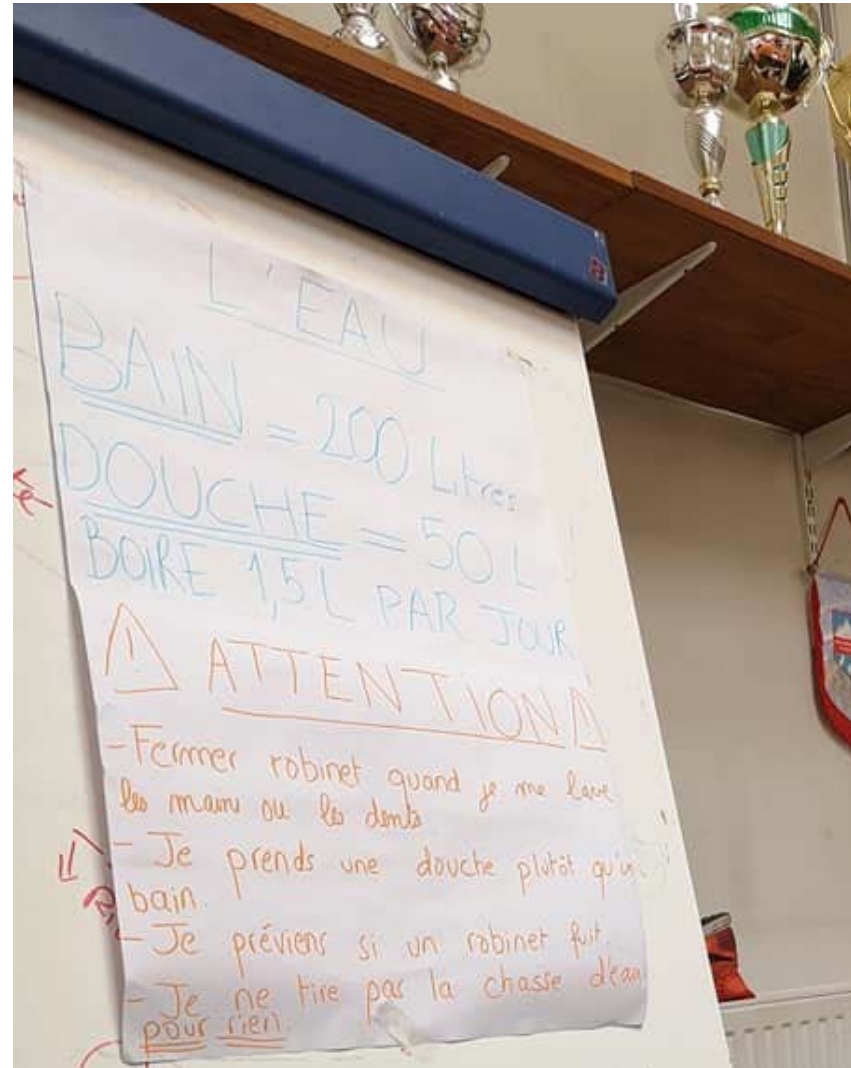 L'EAU
BAIN = 200 Litres
DOUCHE = 50 L
BOIRE 1,5 L PAR JOUR
! ATTENTION
- Fermer robinet quand je me lave
les mains ou les dents
- Je prends une douche plutôt qu'un
bain.
- Je préviens si un robinet fuit.
- Je ne tire pas la chasse d'eau
pour rien.